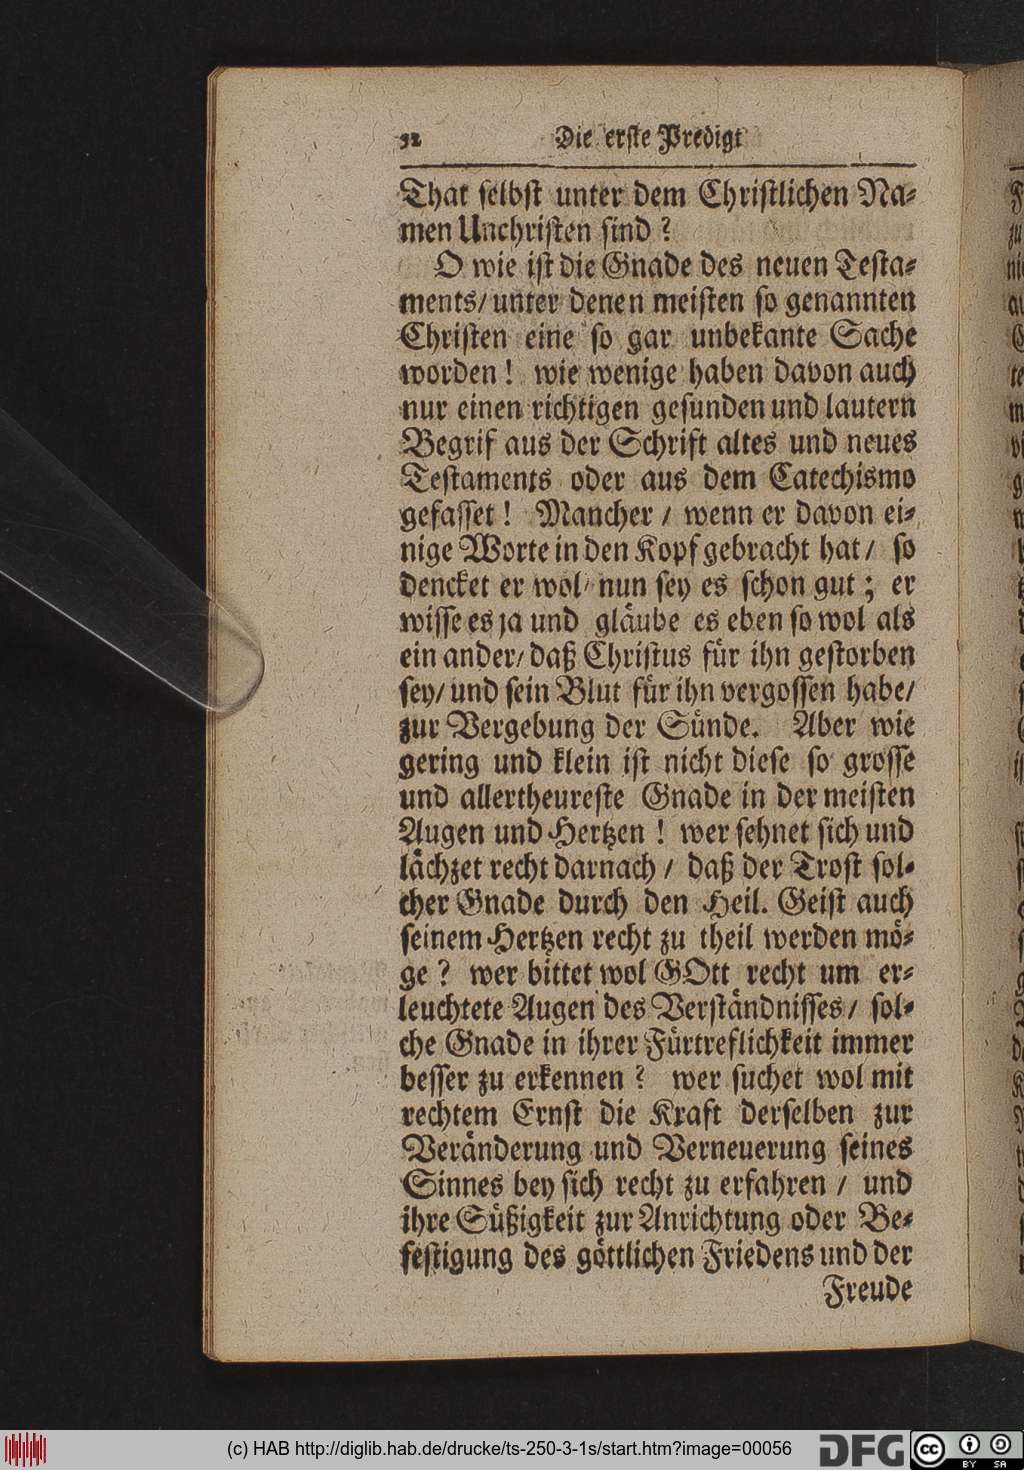 32 Die erste Predigt
That selbst unter dem Christlichen Na-
men Unchristen sind?
O wie ist die Gnade des neuen Testa-
ments/ unter denen meisten so genannten
Christen eine so gar unbekante Sache
worden! wie wenige haben davon auch
nur einen richtigen gesunden und lautern
Begrif aus der Schrift altes und neues
Testaments oder aus dem Catechismo
gefasset! Mancher/ wenn er davon ei-
nige Worte in den Kopf gebracht hat/ so
dencket er wol/ nun sey es schon gut; er
wisse es ja und gläube es eben so wol als
ein ander/ daß Christus für ihn gestorben
sey/ und sein Blut für ihn vergossen habe/
zur Vergebung der Sünde. Aber wie
gering und klein ist nicht diese so grosse
und allertheureste Gnade in der meisten
Augen und Hertzen! wer sehnet sich und
lächzet recht darnach/ daß der Trost sol-
cher Gnade durch den Heil. Geist auch
seinem Hertzen recht zu theil werden mö-
ge? wer bittet wol GOtt recht um er-
leuchtete Augen des Verständnisses/ sol-
che Gnade in ihrer Fürtreflichkeit immer
besser zu erkennen? wer suchet wol mit
rechtem Ernst die Kraft derselben zur
Veränderung und Verneuerung seines
Sinnes bey sich recht zu erfahren/ und
ihre Süßigkeit zur Anrichtung oder Be-
festigung des göttlichen Friedens und der
Freude
(c) HAB http://diglib.hab.de/drucke/ts-250-3-1s/start.htm?image=00056 DFG cc BY SA